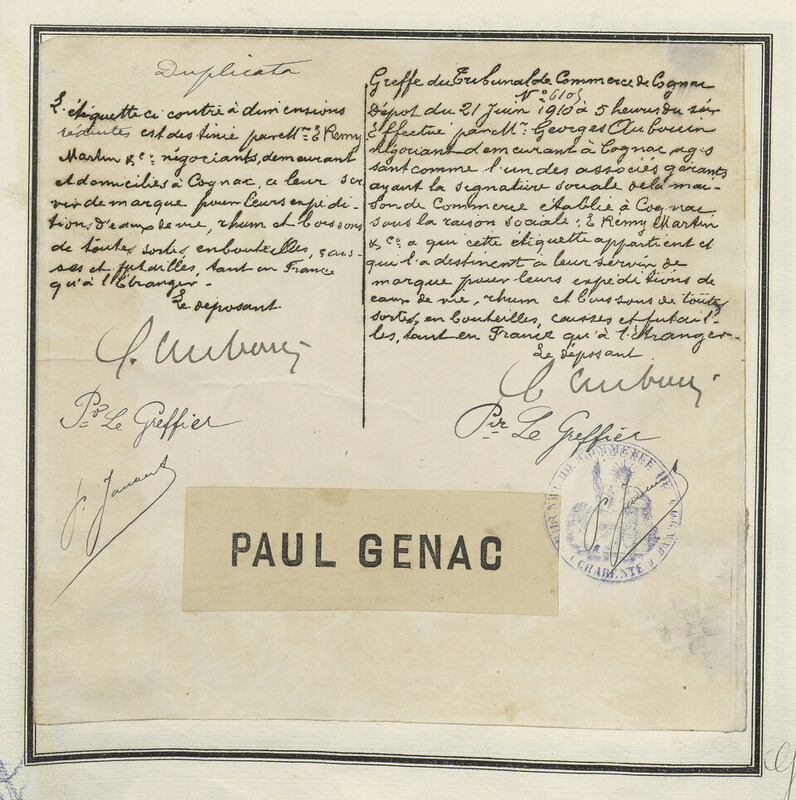 Duplicata
L'étiquette ci contre à dimensions
réduites est destinée par Mrs E. Remy
Martin & Co. négociants, demeurant
et domiciliés à Cognac, à leur ser
vir de marque pour leurs expédi-
tions d'eaux de vie, rhum et boissons
de toutes sortes en bouteilles, cais-
ses et futailles, tant en France
qu'à l'Étranger.-
Le déposant
G. Aubouin
Pr Le Greffier
Greffe du Tribunal de Commerce de Cognac
No 6105
Dépot du 21 Juin 1910 à 5 heures du soir
Effectué par Mr. Georges Aubouin
négociant demeurant à Cognac, agis
sant comme l'un des associés gérants
ayant la signature sociale de la mai-
son de Commerce établie à Cognac
sous la raison sociale: E. Remy Martin
& Co à qui cette étiquette appartient et
qui l'a destinent à leur servir de
marque pour leurs expéditions de
eaux de vie, rhum et boissons de toutes
sortes, en bouteilles, caisses et futail-
les, tant en France qu'à l'étranger.-
Le déposant
G. Aubouin
Pr Le Greffier
TRIBUNAL DE COMMERCE DE COGNAC
CHARENTE
PAUL GENAC